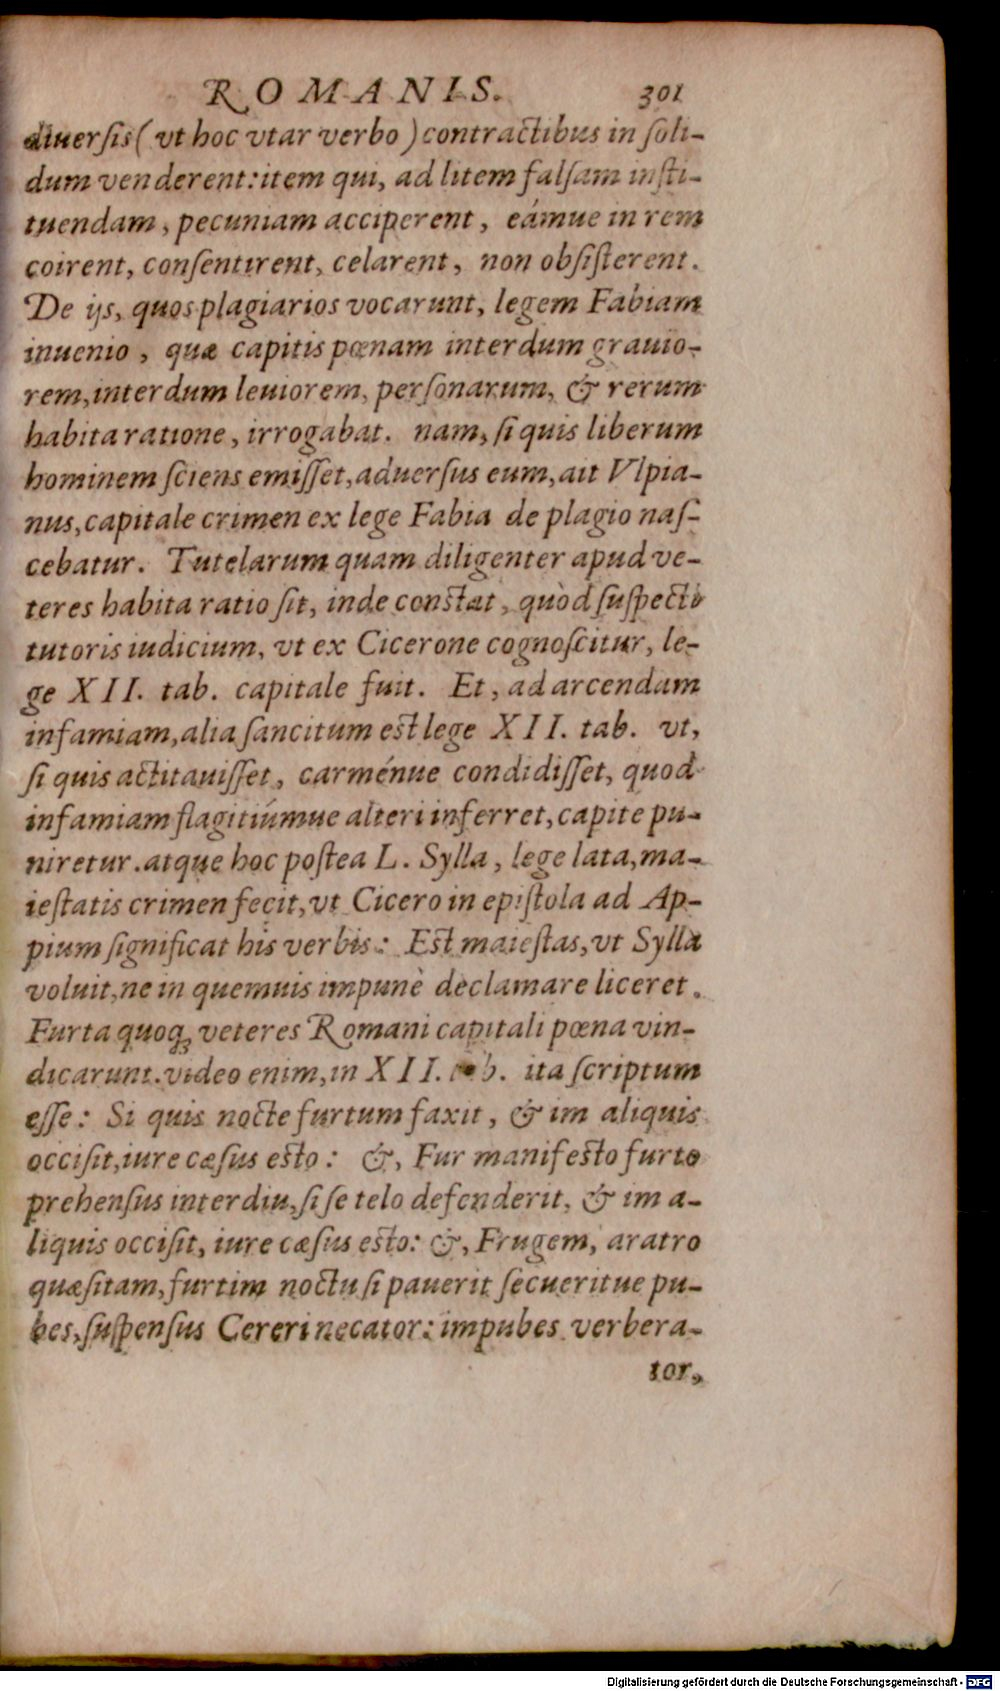 ROMANIS. 301
diuerſis (vt hoc vtar verbo) contractibus in ſoli-
dum venderent: item qui, ad litem falſam inſti-
tuendam, pecuniam acciperent, eámue in rem
coirent, conſentirent, celarent, non obſiſterent.
De ijs, quos plagiarios vocarunt, legem Fabiam
inuenio, quæ capitis pœnam interdum grauio-
rem, interdum leuiorem, perſonarum, & rerum
habita ratione, irrogabat. nam, ſi quis liberum
hominem ſciens emiſſet, aduerſus eum, ait Vlpia-
nus, capitale crimen ex lege Fabia de plagio naſ-
cebatur. Tutelarum quam diligenter apud ve-
teres habita ratio ſit, inde conſtat, quòd ſuſpecti
tutoris iudicium, vt ex Cicerone cognoſcitur, le-
ge XII. tab. capitale fuit. Et, ad arcendam
infamiam, alia ſancitum eſt lege XII. tab. vt,
ſi quis actitauiſſet, carménue condidiſſet, quod
infamiam flagitiúmue alteri inferret, capite pu-
niretur. atque hoc poſtea L. Sylla, lege lata, ma-
ieſtatis crimen fecit, vt Cicero in epiſtola ad Ap-
pium ſignificat his verbis: Eſt maieſtas, vt Sylla
voluit, ne in quemuis impunè declamare liceret.
Furta quoq; veteres Romani capitali pœna vin-
dicarunt. video enim, in XII. ita ſcriptum
eſſe: Si quis nocte furtum faxit, & im aliquis
occiſit, iure cæſus eſto: &, Fur manifeſto furto
prehenſus interdiu, ſi ſe telo defenderit, & im a-
liquis occiſit, iure cæſus eſto: &, Frugem, aratro
quæſitam, furtim noctu ſi pauerit ſecueritue pu-
bes, ſuſpenſus Cereri necator: impubes verbera-
tor,
Digitalisierung gefördert durch die Deutsche Forschungsgemeinschaft - DFG